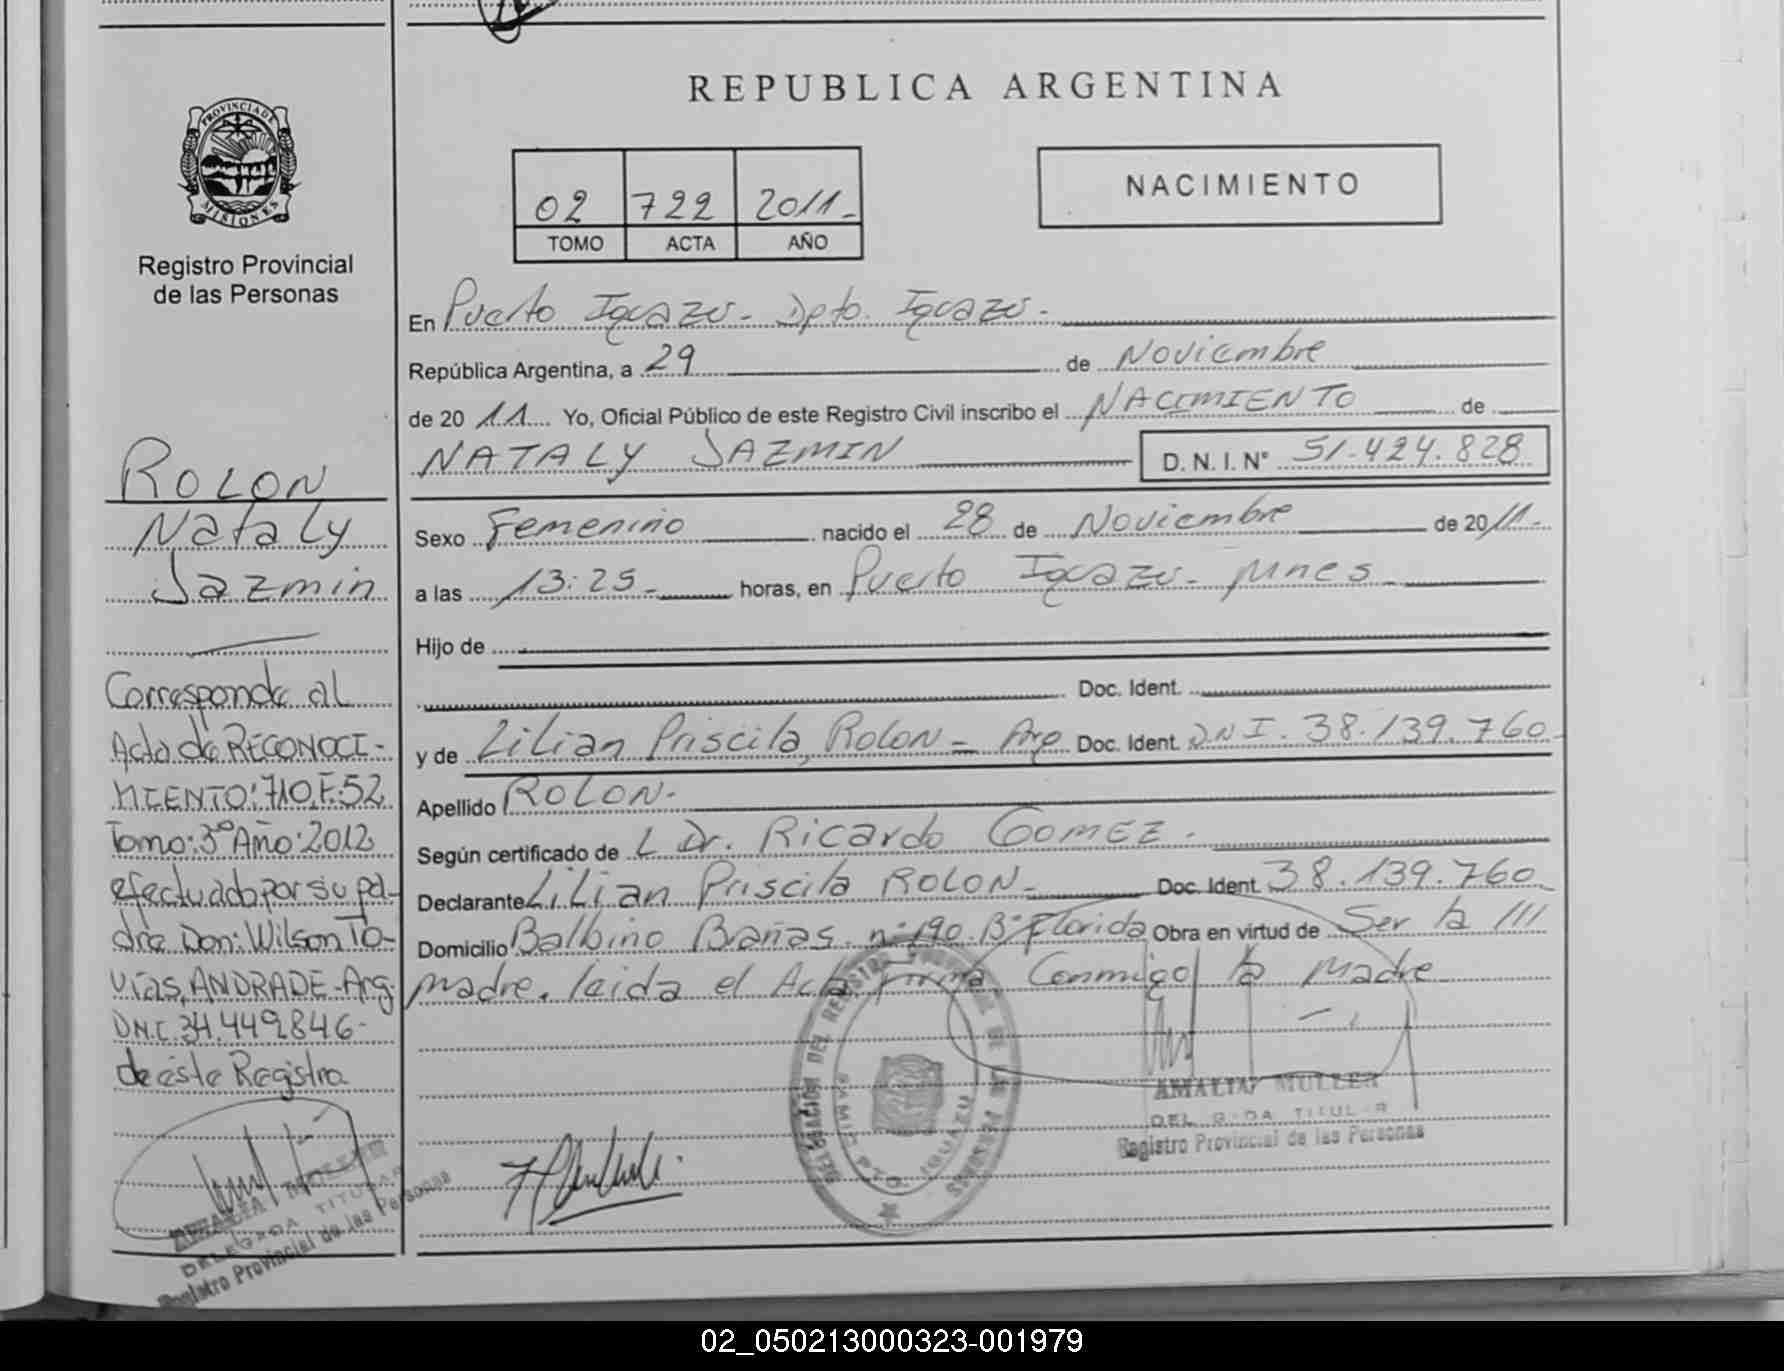 REPUBLICA ARGENTINA
PROVINCIA DE
MISIONES
Registro Provincial
de las Personas
02 722 2011-
TOMO ACTA AÑO
NACIMIENTO
En Puerto Iguazu - Dpto. Iguazu -
República Argentina, a 29 de Noviembre
de 20 11 Yo, Oficial Público de este Registro Civil inscribo el NACIMIENTO de
NATALY JAZMIN D. N. I. N° 51.424.828
Sexo Femenino nacido el 28 de Noviembre de 20 11.-
a las 13:25 - horas, en Puerto Iguazu - Mnes -
Hijo de
Doc. Ident.
y de Lilian Priscila ROLON - Arg Doc. Ident. D.N I. 38.139.760 -
Apellido ROLON.-
Según certificado de L Dr. Ricardo GOMEZ.-
Declarante Lilian Priscila ROLON - Doc. Ident. 38.139.760 -
Domicilio Balbino Brañas n° 190. B° Florida Obra en virtud de Ser la ///
madre. leida el Acta firma Conmigo la Madre
ROLON
Nataly
Jazmin
Corresponde al
Acta de RECONOCI-
MIENTO: 710, F. 52
Tomo: 3° Año: 2012
efectuado por su pa-
dre Don: Wilson To-
vías, ANDRADE - Arg.
D.N.I. 34.449.846-
de éste Registro
AMALIA MULLER
DELEGADA TITULAR
Registro Provincial de las Personas
AMALIA MULLER
DELEGADA TITULAR
Registro Provincial de las Personas
DELEGACION DEL REGISTRO PROVINCIAL DE LAS PERSONAS
PTO. IGUAZU
02_050213000323-001979